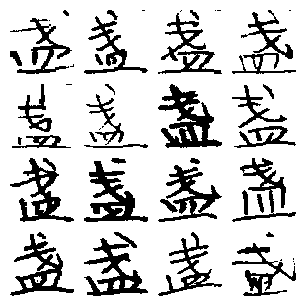 盏盏盏盏
盏盏盏盏
盏盏盏盏
盏盏盏盏